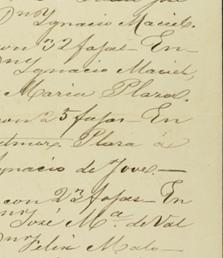 Ignacio Maciel.
con 32 fojas – En
Ignacio Maciel,
Maria Plaza.
con 25 fojas – En
Plaza de
Ignacio de Jove. —
con 23 fojas – En
José Ma. de Val
Felix Malo —